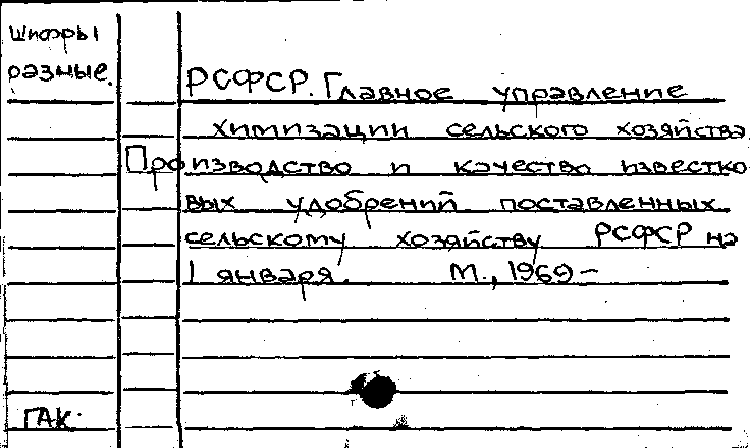 Шифры
разные.
РСФСР. Главное управление
химизации сельского хозяйства
Производство и качество известко
вых удобрений поставленных
сельскому хозяйству РСФСР на
1 января. М., 1969 –
ГАК.